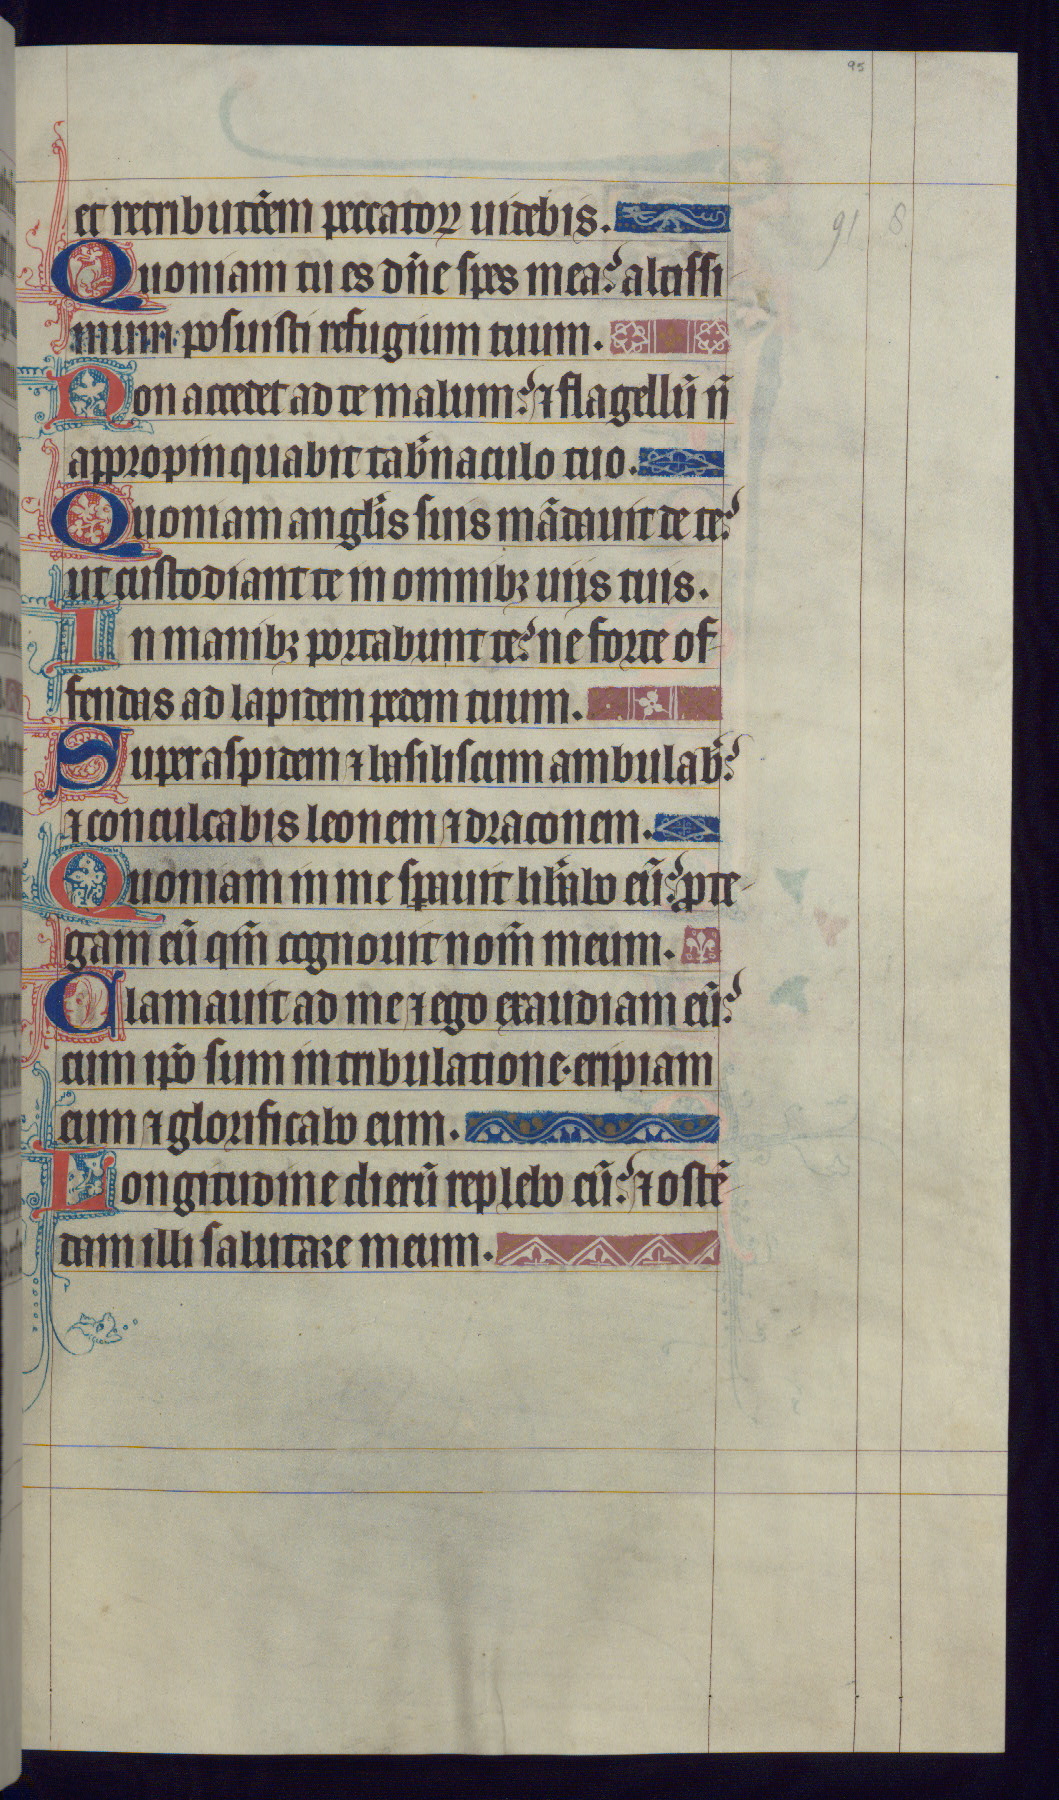 95
et retributōem peccatoꝝ uidebis.
91 8
Quoniam tu es dn̄e spes mea: altissi
mum posuisti refugium tuum.
Non accedet ad te malum: ⁊ flagellū n̄
appropinquabit tab̄naculo tuo.
Quoniam angl̄is suis mādauit de te:
ut custodiant te in omnibꝫ uiis tuis.
In manibꝫ portabunt te: ne forte of
fendas ad lapidem pedem tuum.
Super aspidem ⁊ basiliscum ambulab̄:
⁊ conculcabis leonem ⁊ draconem.
Quoniam in me sꝑauit lib̄abo eū: ꝓte
gam eū qm̄ cognouit nom̄ meum.
Clamauit ad me ⁊ ego exaudiam eū:
cum ip̄o sum in tribulatione· eripiam
eum ⁊ glorificabo eum.
Longitudine dierū replebo eū: ⁊ ostē
dam illi salutare meum.